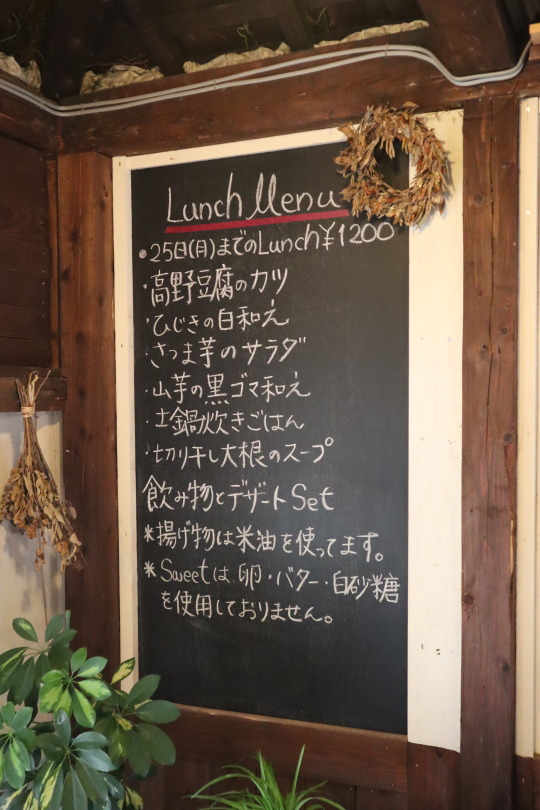 Lunch Menu
•25日(月)までのLunch¥1200
・高野豆腐のカツ
・ひじきの白和え
・さつま芋のサラダ
・山芋の黒ゴマ和え
・土鍋炊きごはん
・切り干し大根のスープ
飲み物とデザートSet
*揚げ物は米油を使ってます。
*Sweetは卵・バター・白砂糖
を使用しておりません。